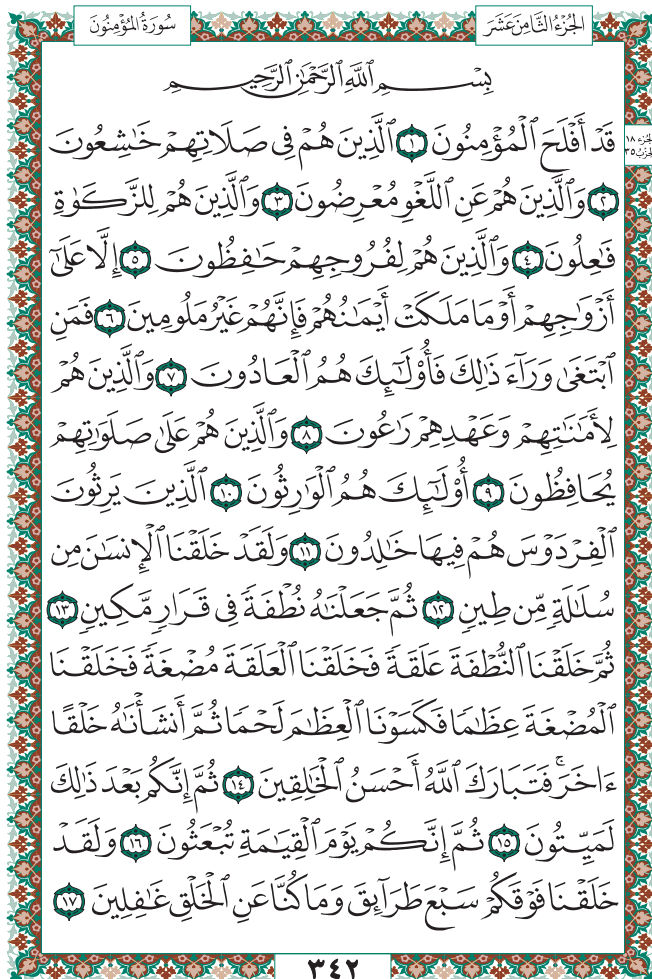 الجُزْءُ الثَّامِنَ عَشَرَ
سُورَةُ المُؤْمِنُونَ
بِسْمِ ٱللَّهِ ٱلرَّحْمَٰنِ ٱلرَّحِيمِ
قَدْ أَفْلَحَ ٱلْمُؤْمِنُونَ ١ ٱلَّذِينَ هُمْ فِى صَلَاتِهِمْ خَٰشِعُونَ
٢ وَٱلَّذِينَ هُمْ عَنِ ٱللَّغْوِ مُعْرِضُونَ ٣ وَٱلَّذِينَ هُمْ لِلزَّكَوٰةِ
فَٰعِلُونَ ٤ وَٱلَّذِينَ هُمْ لِفُرُوجِهِمْ حَٰفِظُونَ ٥ إِلَّا عَلَىٰٓ
أَزْوَٰجِهِمْ أَوْ مَا مَلَكَتْ أَيْمَٰنُهُمْ فَإِنَّهُمْ غَيْرُ مَلُومِينَ ٦ فَمَنِ
ٱبْتَغَىٰ وَرَآءَ ذَٰلِكَ فَأُو۟لَٰٓئِكَ هُمُ ٱلْعَادُونَ ٧ وَٱلَّذِينَ هُمْ
لِأَمَٰنَٰتِهِمْ وَعَهْدِهِمْ رَٰعُونَ ٨ وَٱلَّذِينَ هُمْ عَلَىٰ صَلَوَٰتِهِمْ
يُحَافِظُونَ ٩ أُو۟لَٰٓئِكَ هُمُ ٱلْوَٰرِثُونَ ١٠ ٱلَّذِينَ يَرِثُونَ
ٱلْفِرْدَوْسَ هُمْ فِيهَا خَٰلِدُونَ ١١ وَلَقَدْ خَلَقْنَا ٱلْإِنسَٰنَ مِن
سُلَٰلَةٍ مِّن طِينٍ ١٢ ثُمَّ جَعَلْنَٰهُ نُطْفَةً فِى قَرَارٍ مَّكِينٍ ١٣
ثُمَّ خَلَقْنَا ٱلنُّطْفَةَ عَلَقَةً فَخَلَقْنَا ٱلْعَلَقَةَ مُضْغَةً فَخَلَقْنَا
ٱلْمُضْغَةَ عِظَٰمًا فَكَسَوْنَا ٱلْعِظَٰمَ لَحْمًا ثُمَّ أَنشَأْنَٰهُ خَلْقًا
ءَاخَرَ ۚ فَتَبَارَكَ ٱللَّهُ أَحْسَنُ ٱلْخَٰلِقِينَ ١٤ ثُمَّ إِنَّكُم بَعْدَ ذَٰلِكَ
لَمَيِّتُونَ ١٥ ثُمَّ إِنَّكُمْ يَوْمَ ٱلْقِيَٰمَةِ تُبْعَثُونَ ١٦ وَلَقَدْ
خَلَقْنَا فَوْقَكُمْ سَبْعَ طَرَآئِقَ وَمَا كُنَّا عَنِ ٱلْخَلْقِ غَٰفِلِينَ ١٧
الجزء ١٨
الحزب ٣٥
٣٤٢